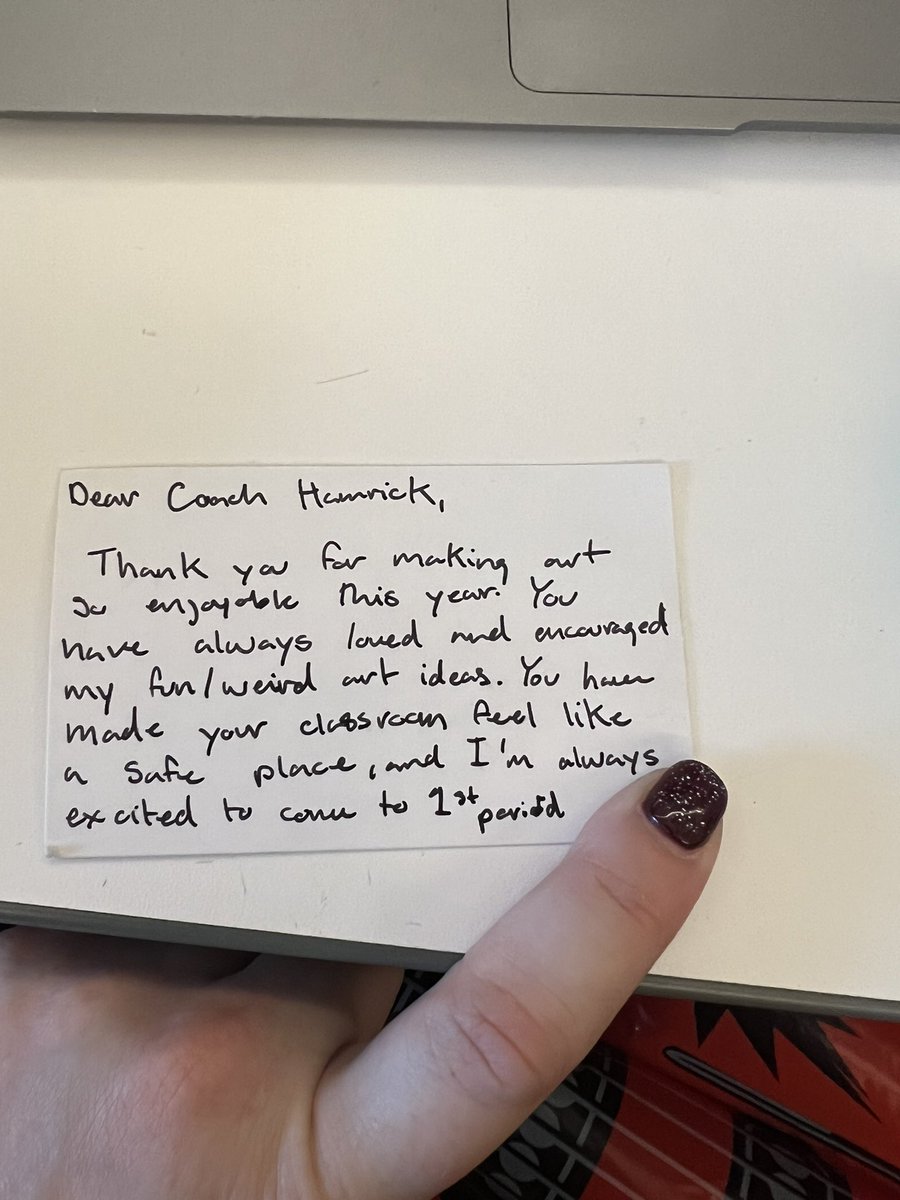 Dear Coach Hamrick,
Thank you for making art
so enjoyable this year. You
have always loved and encouraged
my fun/weird art ideas. You have
made your classroom feel like
a safe place, and I'm always
excited to come to 1st period